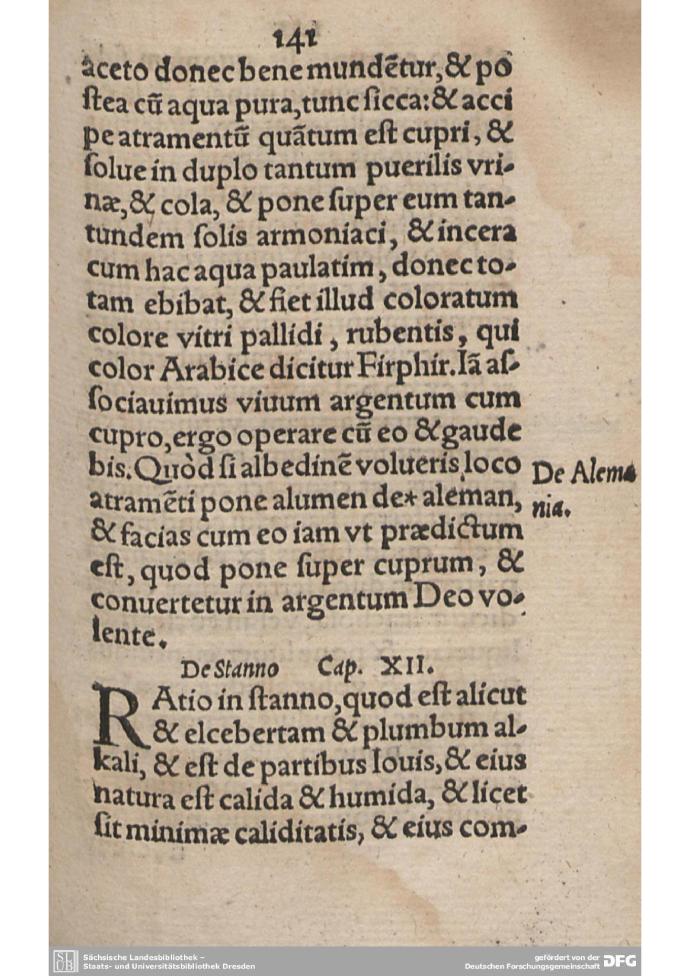 141
aceto donec bene mundẽtur, & po
ſtea cũ aqua pura, tunc ſicca: & acci
pe atramentũ quãtum eſt cupri, &
ſolue in duplo tantum puerilis vri-
næ, & cola, & pone ſuper eum tan-
tundem ſolis armoniaci, & incera
cum hac aqua paulatim, donec to-
tam ebibat, & fiet illud coloratum
colore vitri pallidi, rubentis, qui
color Arabice dicitur Firphir. Iã aſ-
ſociauimus viuum argentum cum
cupro, ergo operare cũ eo & gaude
bis. Quòd ſi albedinẽ volueris loco
atramẽti pone alumen de* aleman,
& facias cum eo iam vt prædictum
eſt, quod pone ſuper cuprum, &
conuertetur in argentum Deo vo-
lente.
De Alema
nia.
De Stanno Cap. XII.
RAtio in ſtanno, quod eſt alicut
& elcebertam & plumbum al-
kali, & eſt de partibus Iouis, & eius
natura eſt calida & humida, & licet
ſit minimæ caliditatis, & eius com-
SLUB
Sächsische Landesbibliothek –
Staats- und Universitätsbibliothek Dresden
gefördert von der
Deutschen Forschungsgemeinschaft DFG